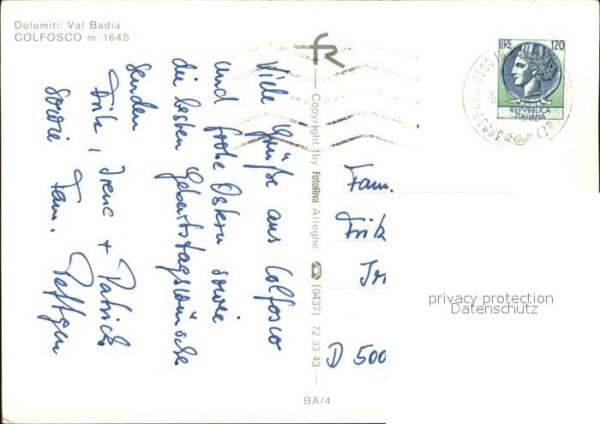 Dolomiti: Val Badia
COLFOSCO m. 1645
Viele Grüße aus Colfosco
und frohe Ostern sowie
die besten Geburtstagswünsche
senden
Fritz, Irene + Patrick
sowie Fam.
fR
Copyright by FotoRia Alleghe ☎ (0437) 72 33 43
BA/4
LIRE 120
REPVBBLICA
ITALIANA
Fam.
Fritz
D 500
privacy protection
Datenschutz